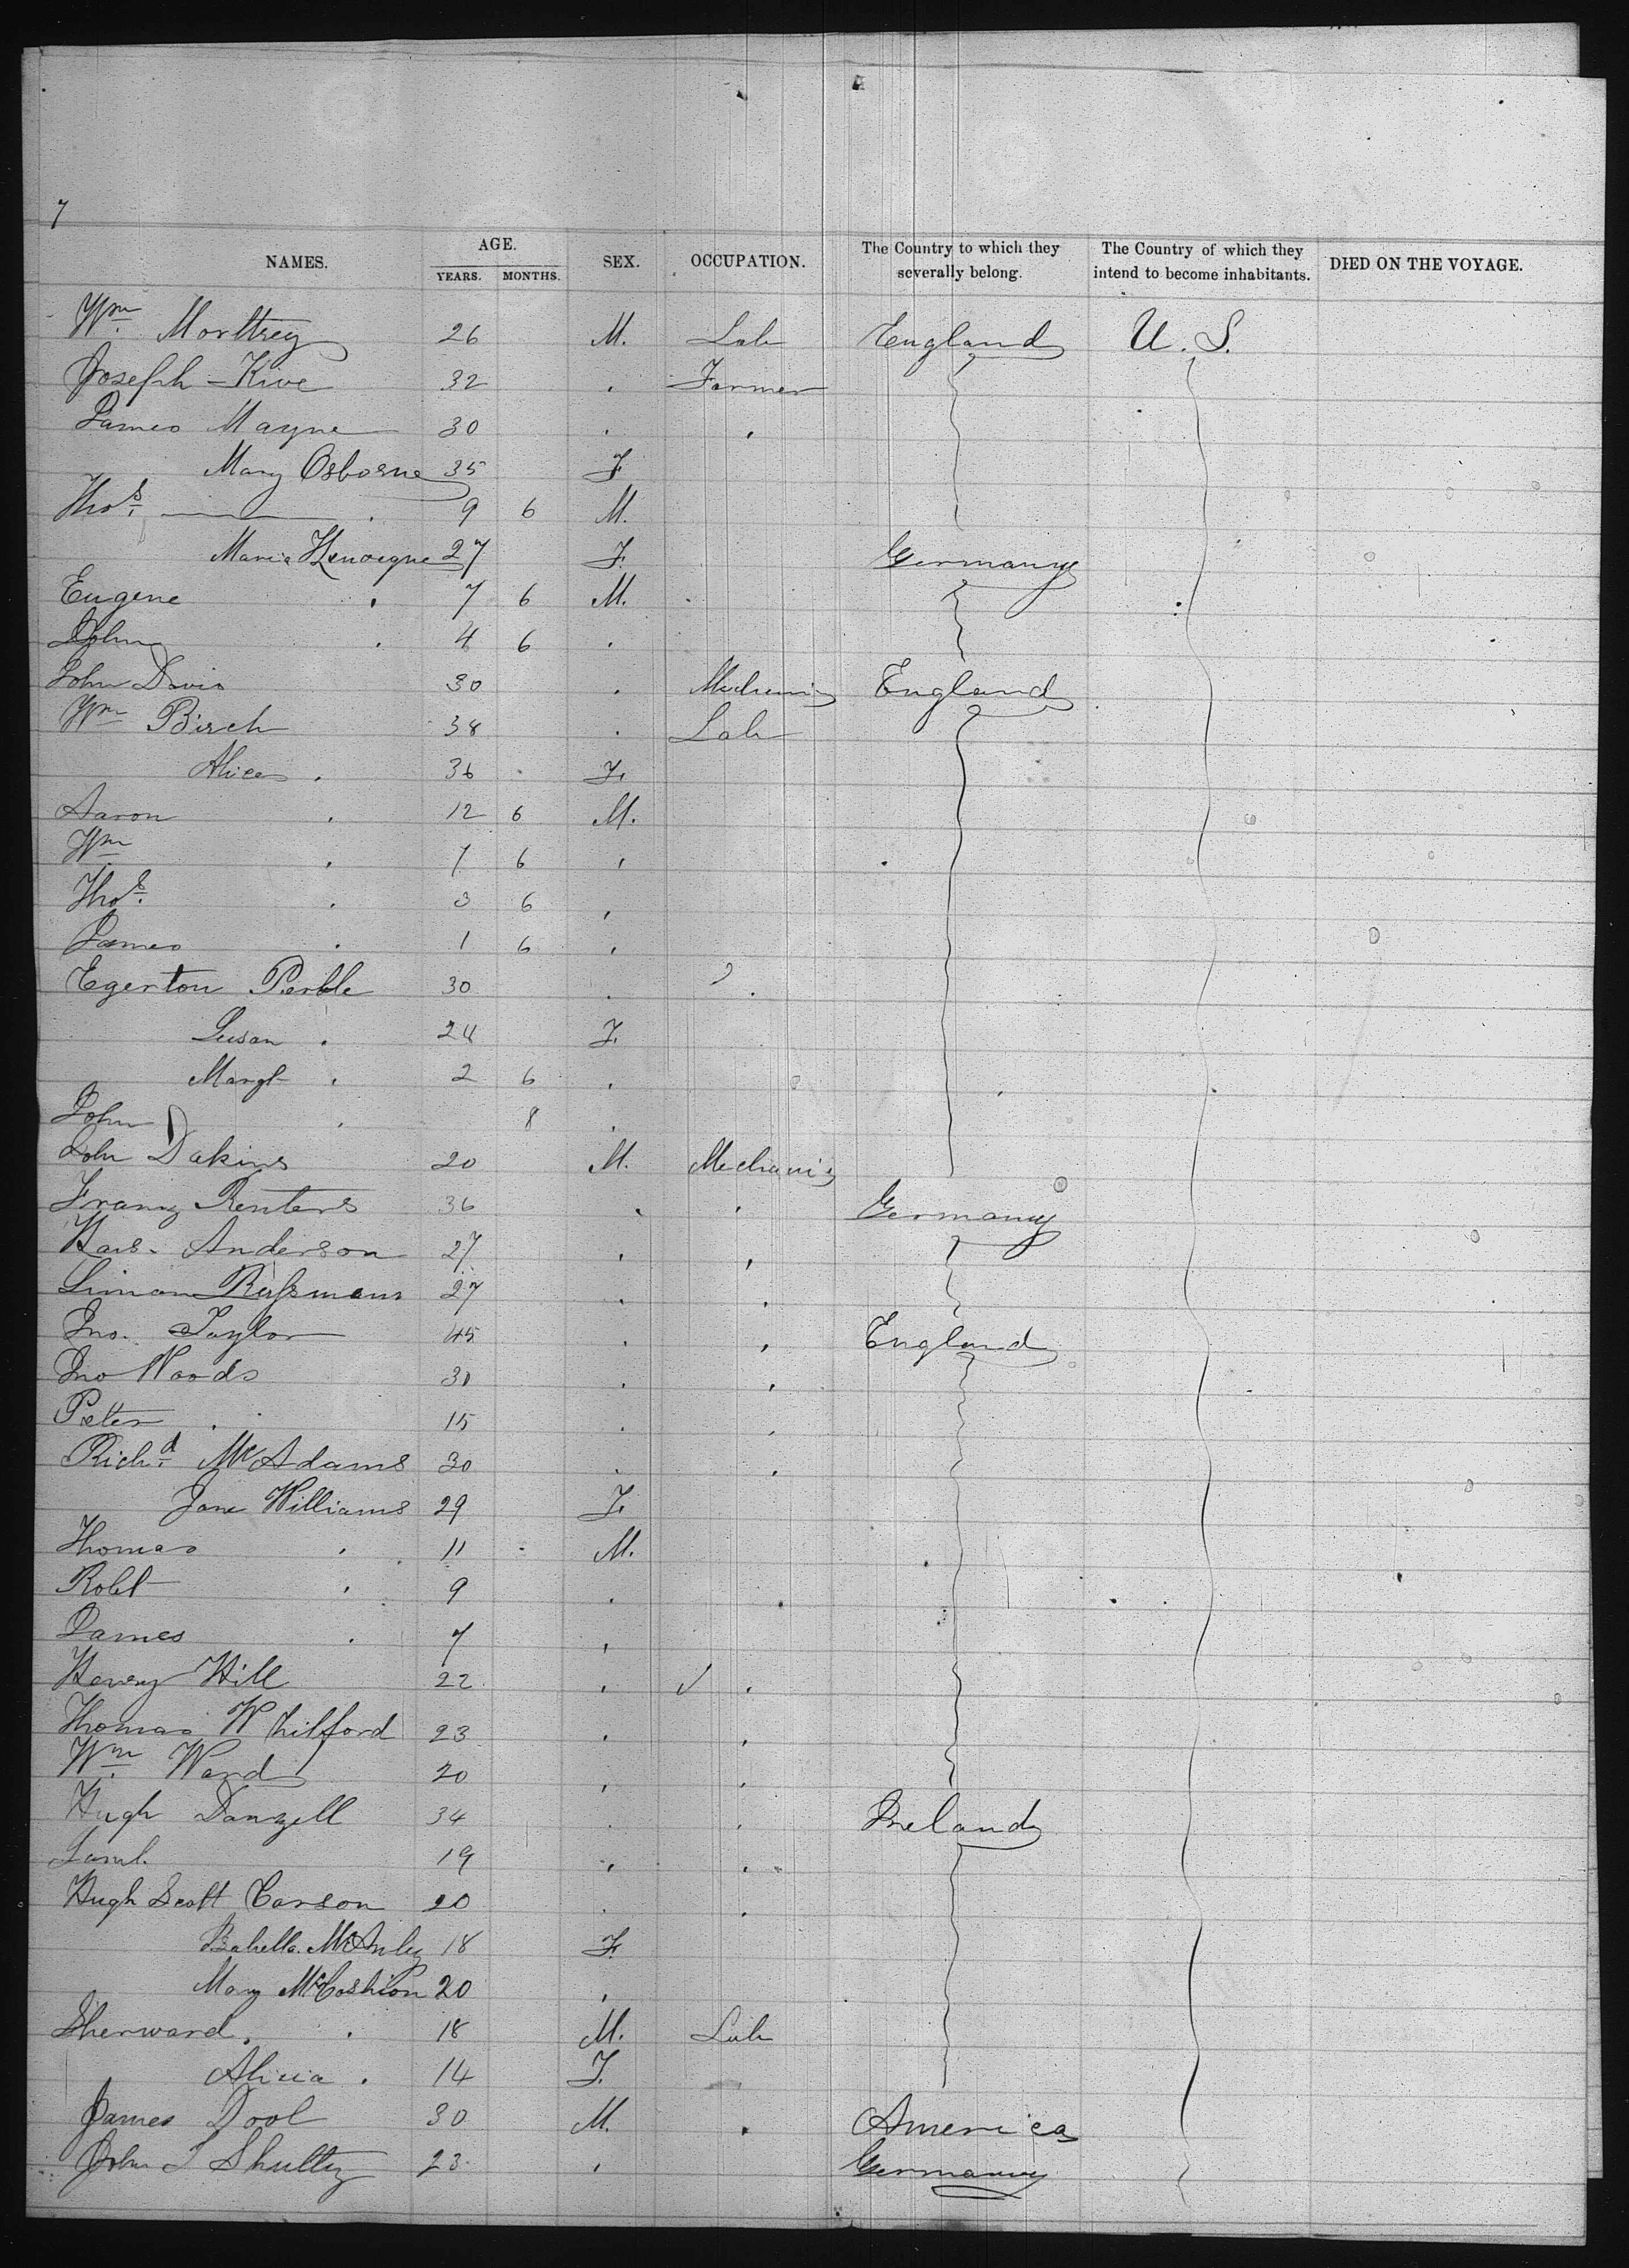 7
NAMES. AGE. YEARS. MONTHS. SEX. OCCUPATION. The Country to which they severally belong. The Country of which they intend to become inhabitants. DIED ON THE VOYAGE.
Wm. 26 M. Lab England U. S.
Joseph Kive 32 . Farmer
James Mayne 30 . .
Mary Osborne 35 F
Thos. — . 9 6 M.
Maria 27 F. Germany
Eugene . 7 6 M.
John . 4 6 .
John Davis 30 . Mechanic England
Wm Birch 38 . Lab
Alice . 36 F.
Aaron . 12 6 M.
Wm . 7 6 .
Thos. . 3 6 .
James . 1 6 .
Egerton 30 . .
Susan . 24 F.
Margt . 2 6 .
John . 8 .
John Dakins 20 M. Mechanic
Franz Renters 36 . . Germany
Anderson 27 . .
Simon 27 . .
Jno. Taylor 45 . . England
Jno Woods 30 . .
Peter . 15 . .
Richd. McAdams 30 . .
Jane Williams 29 F.
Thomas . 11 M.
Robt . 9 .
James . 7 .
Henry Hill 22 . .
Thomas Whilfford 23 . .
Wm. Ward 20 . .
Hugh Danzell 34 . . Ireland
Saml. 19 . .
Hugh Scott Carson 20 . .
Isabella 18 F.
Mary McCashion 20 .
Sherward . 18 M. Lab
Alicia . 14 F.
James Dool 30 M. . America
John Shultz 23 . Germany